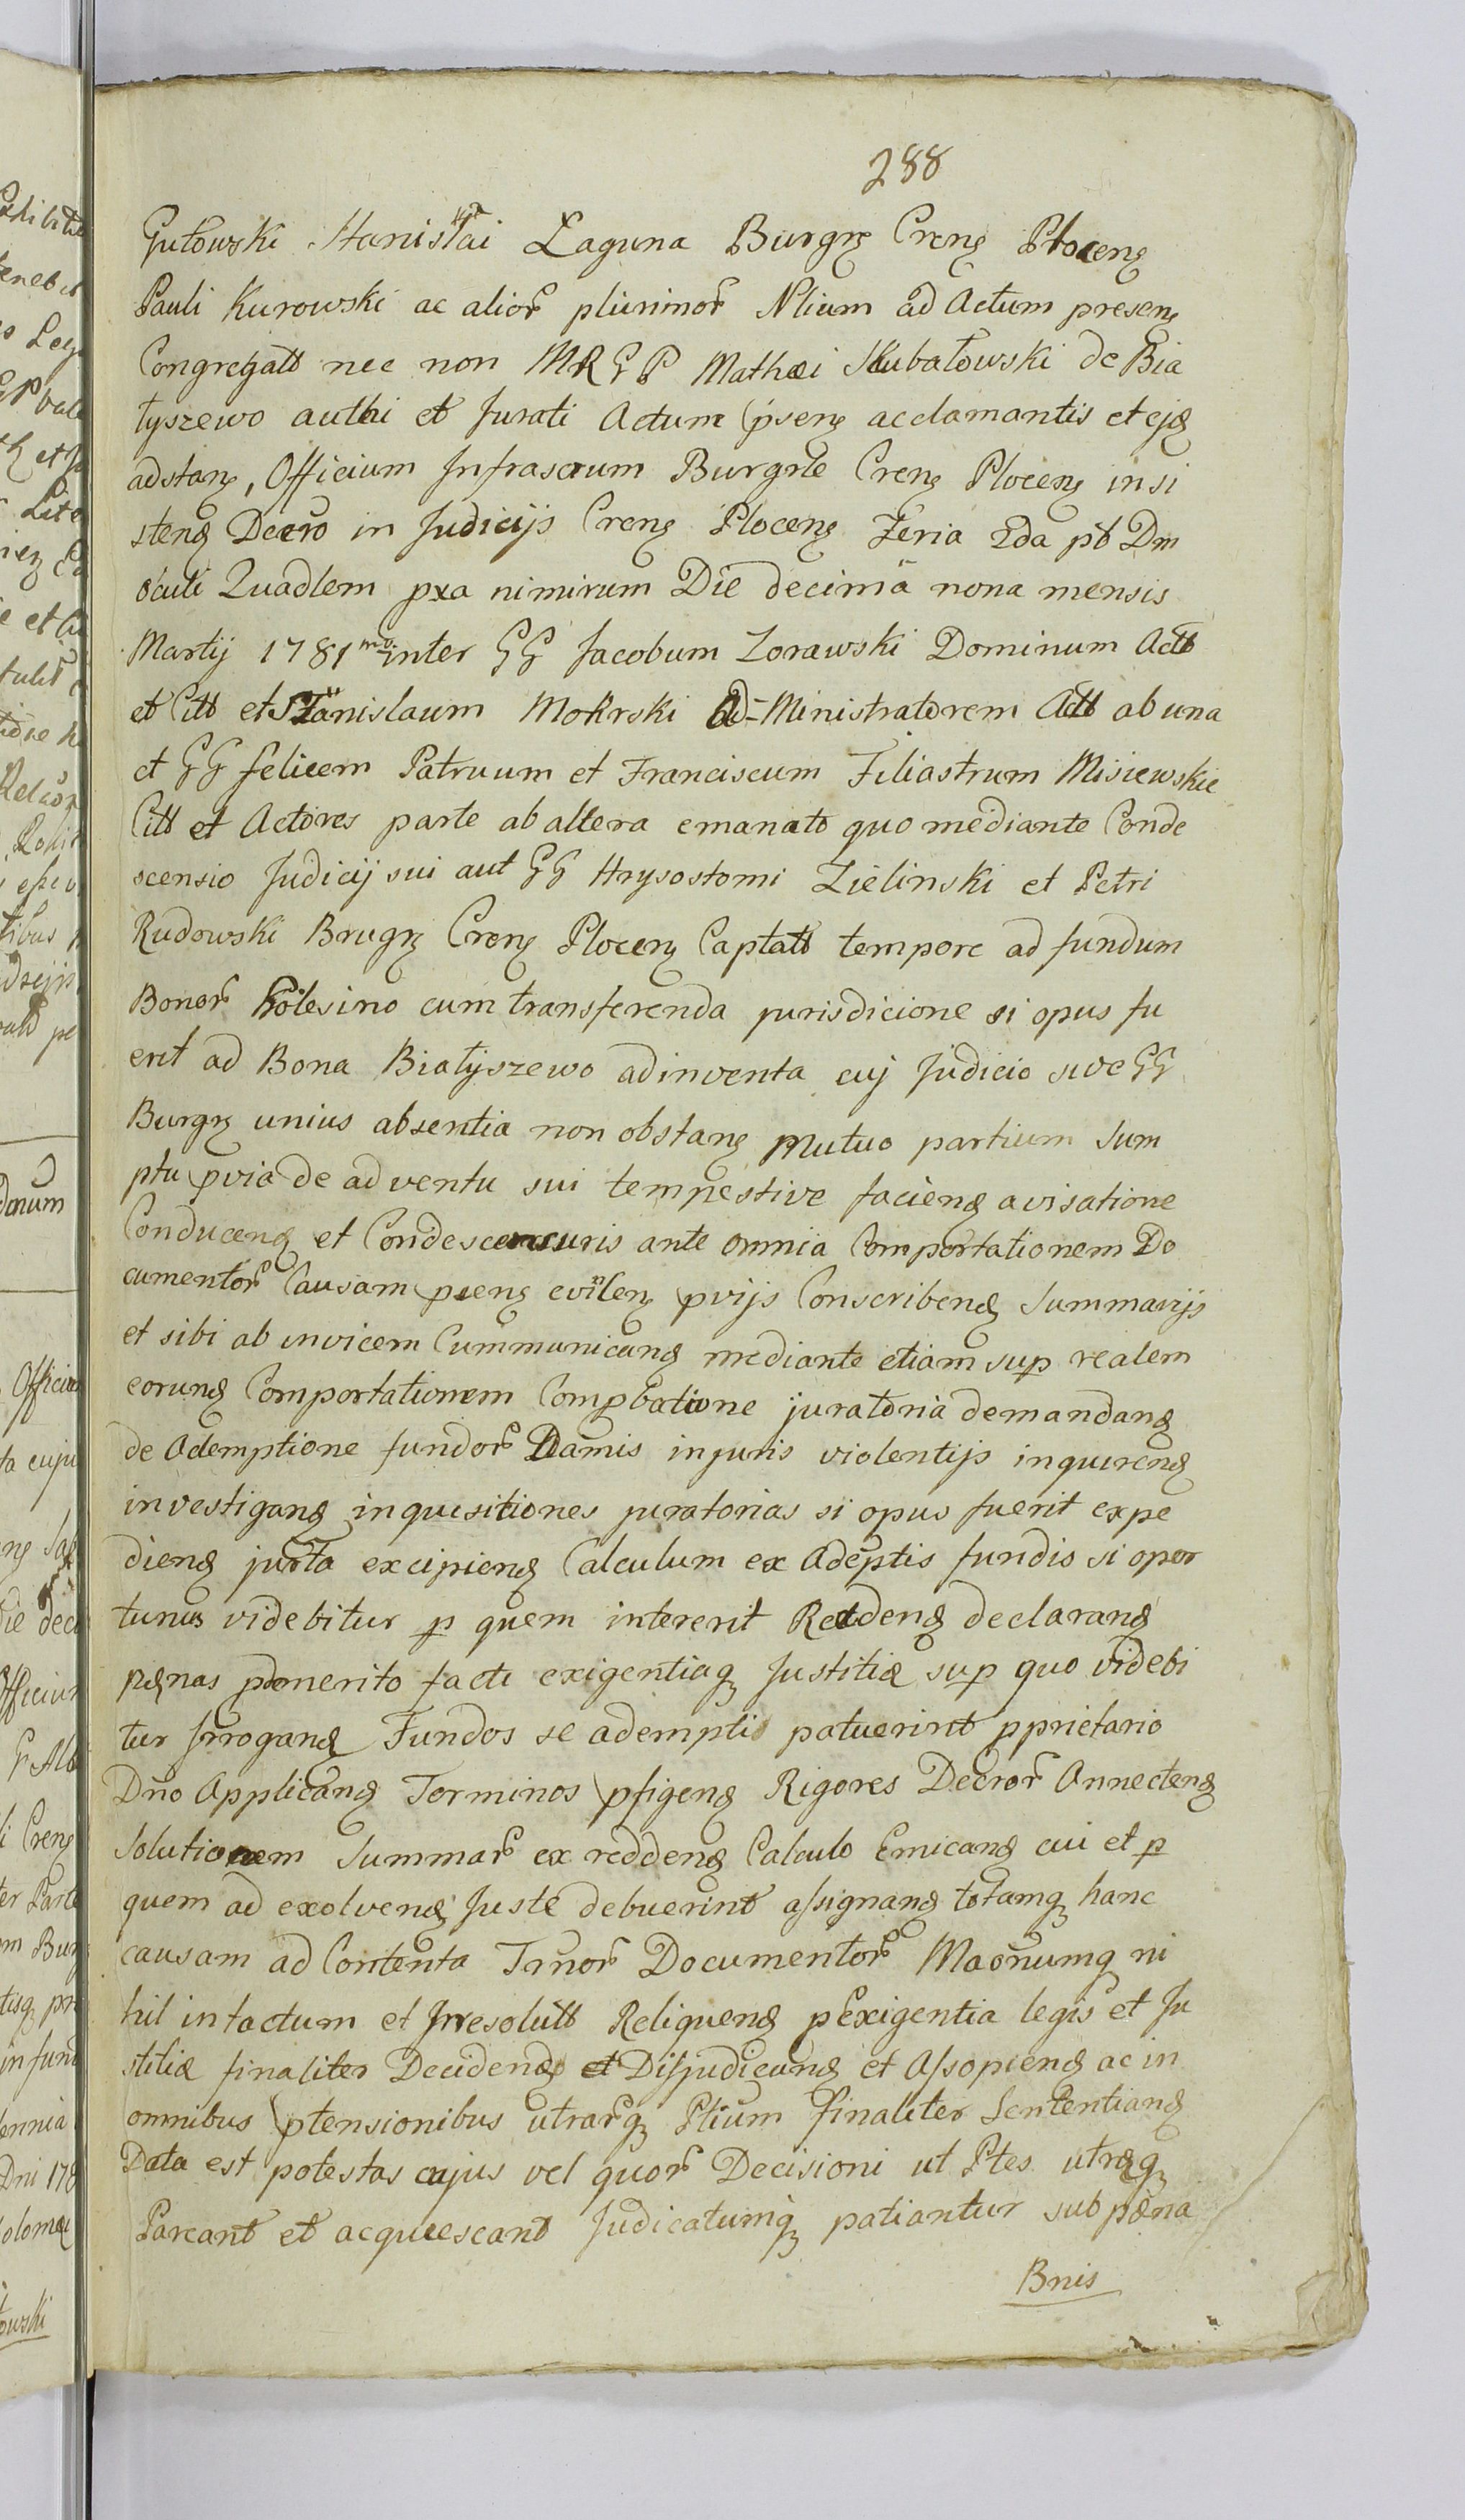 288
Gutowski Stanislai Łaguna Burgrę Crenę Płocenę
Pauli Kurowski ac alior plurimor Nlium ad Actum presenę
Congregatt nec non MRGP Mathæi Skubałowski de Bia
łyszewo authi et Jurati Actum psenę acclamantis et ejq
adstanę, Officium Infrascrum Burgrle Crenę Plocenę insi
stenq Decro in Judicijs Crenę Plocenę Feria 2da pt Dm
oculi Quadlem pxa nimirum Die decima nona mensis
Martij 1781mo inter GG Jacobum Zorawski Dominum Actt
et Citt et Stanislaum Mokrski Ad-Ministratorem Actt ab una
et GG felicem Patruum et Franciscum Filiastrum Misiewskie
Citt et Actores parte ab altera emanato quo mediante Conde
scensio Judicij sui aut GG Hrysostomi Zielinski et Petri
Rudowski Brugrę Crenę Plocenę Captatt tempore ad fundum
Bonor Kolesino cum transferenda jurisdicione si opus fu
erit ad Bona Białyszewo adinventa cuj Judicio sive GG
Burgrę unius absentia non obstanę mutuo partium sum
ptu pvia de adventu sui tempestive facienq avisatione
Conducenq et Condescensuris ante omnia Comportationem Do
cumentor Causam pienę evilenę pvijs Conscribenq Summarijs
et sibi ab invicem Cummunicanq mediante etiam sup realem
eorunq Comportationem Compbatione juratoria demandanq
de Ademptione fundor Damis injuris violentijs inquirenq
investiganq inquisitiones juratorias si opus fuerit expe
dienq juxta excipienq Calculum ex Adeptis fundis si opor
tunus videbitur p quem intererit Reddenq declaranq
pænas pdemerito facti exigentiaq Justitiæ sup quo videbi
tur Irroganq Fundos se ademptis patuerint pprietario
Dno Applicanq Terminos pfigenq Rigores Decror Annectenq
Solutionem Summar ex reddenq Calculo Emicanq cui et p
quem ad exolvenq Juste debuerint assignanq totamq hanc
causam ad Contenta Trnor Documentor Maonumq ni
hil intactum et Irresolutt Reliquenq pExigentia legis et Ju
stitiæ finaliter Decidenq et Disjudicanq et Assopienq ac in
omnibus ptensionibus utrarq Ptium finaliter Sententianq
Data est potestas cujus vel quor Decisioni ut Ptes utræq
Pareant et acquiescant Judicatumq patiantur sub pæna
Bnis